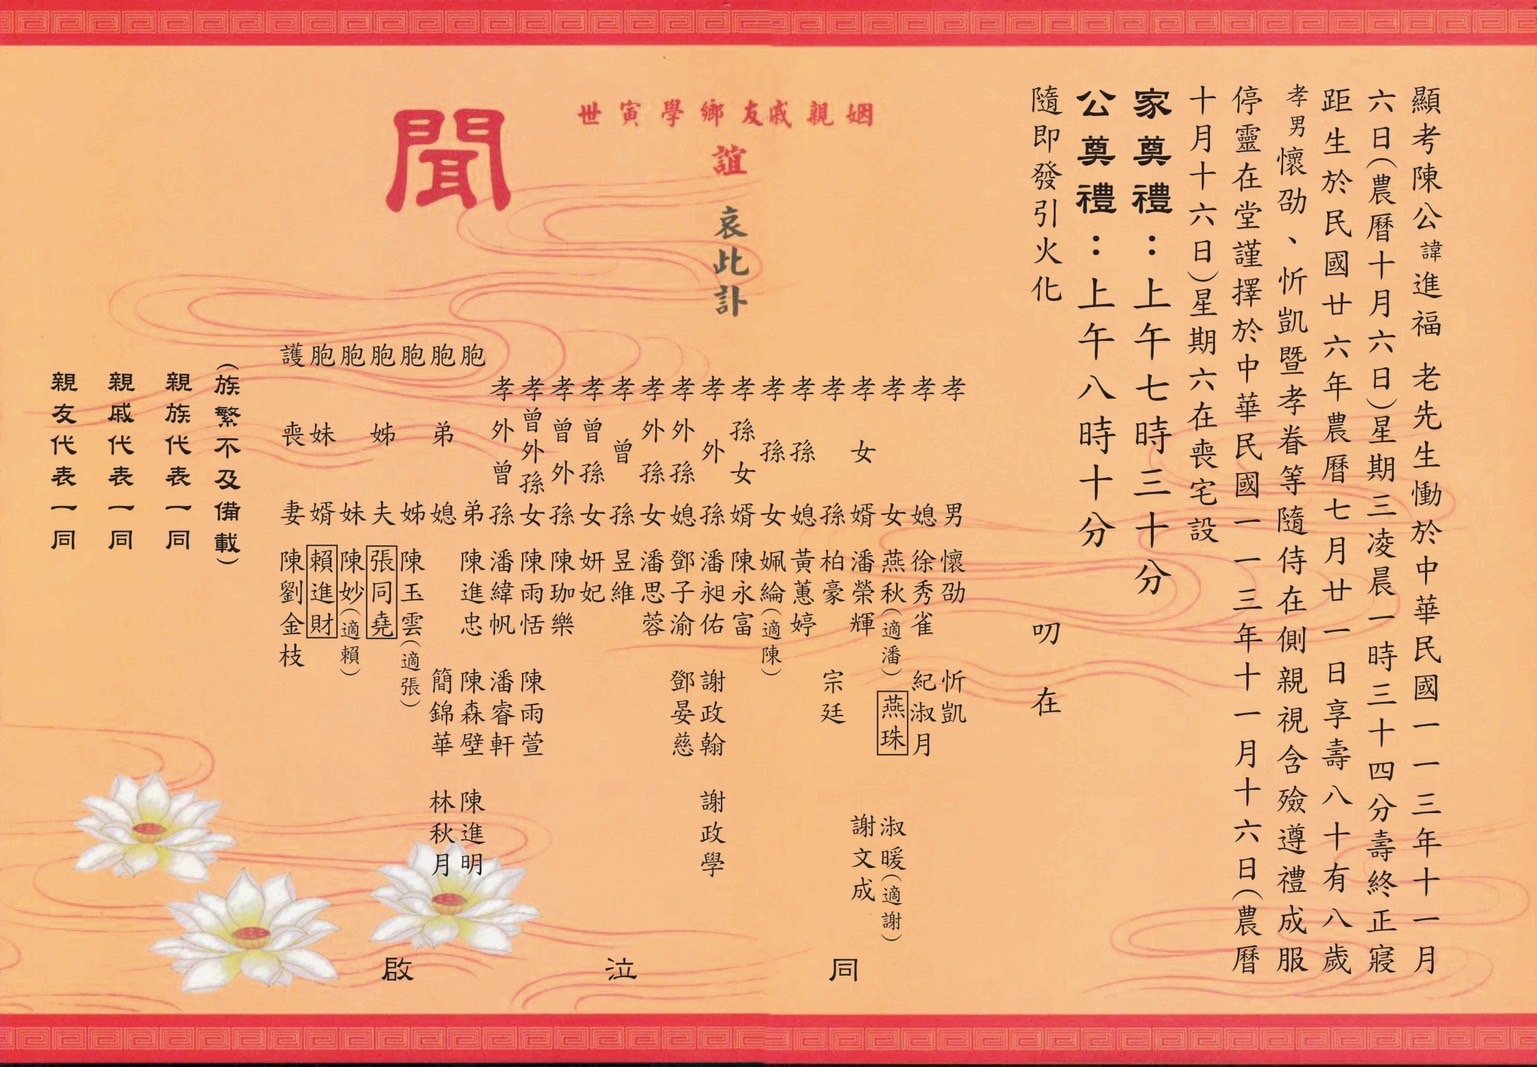 顯考陳公諱進福 老先生慟於中華民國一一三年十一月
六日(農曆十月六日)星期三凌晨一時三十四分壽終正寢
距生於民國廿六年農曆七月廿一日享壽八十有八歲
孝男懷劭、忻凱暨孝眷等隨侍在側親視含殮遵禮成服
停靈在堂謹擇於中華民國一一三年十一月十六日(農曆
十月十六日)星期六在喪宅設
家奠禮：上午七時三十分
公奠禮：上午八時十分
隨即發引火化
叨在
姻親戚友鄉學寅世
誼
哀此訃
聞
孝男 懷劭 忻凱
孝媳 徐秀雀 紀淑月
孝女 燕秋(適潘) 燕珠 淑暖(適謝)
孝女婿 潘榮輝 謝文成
孝孫 柏豪 宗廷
孝孫媳 黃蕙婷
孝孫女 姵綸(適陳)
孝孫女婿 陳永富
孝外孫 潘昶佑 謝政翰 謝政學
孝外孫媳 鄧子渝 鄧晏慈
孝外孫女 潘思蓉
孝曾孫 昱維
孝曾孫女 妍妃
孝曾外孫 陳珈樂
孝曾外孫女 陳雨恬 陳雨萱
孝外曾孫 潘緯帆 潘睿軒
胞弟 陳進忠 陳森壁 陳進明
胞弟媳 簡錦華 林秋月
胞姊 陳玉雲(適張)
胞姊夫 張同堯
胞妹 陳妙(適賴)
胞妹婿 賴進財
護喪妻 陳劉金枝
同泣啟
(族繁不及備載)
親族代表一同
親戚代表一同
親友代表一同